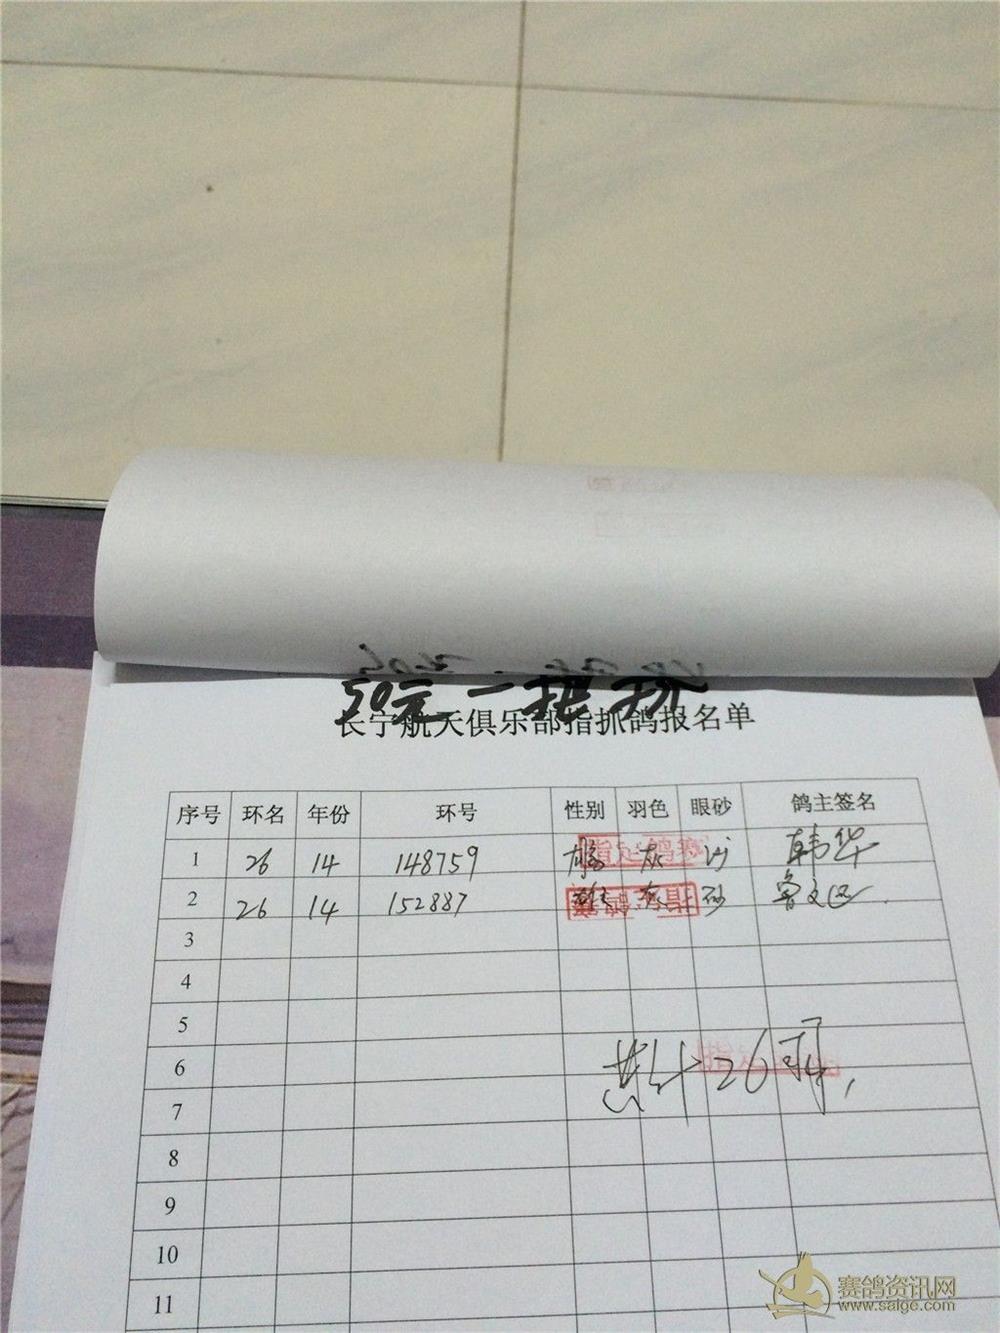 50元一
长宁航天俱乐部指抓鸽报名单
序号 环名 年份 环号 性别 羽色 眼砂 鸽主签名
1 26 14 148759 灰 沙 韩华
2 26 14 152887 雄 灰 砂 鲁文
指定鸽赛
指定鸽赛
3
4
5
6
总计26羽
7
8
9
10
11
赛鸽资讯网
www.saige.com